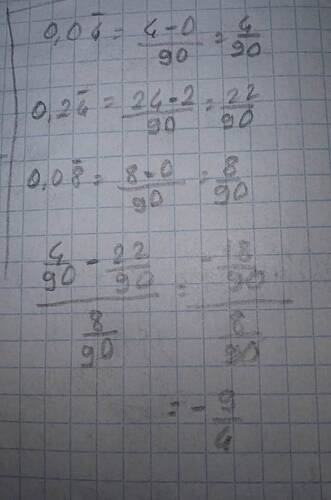 0,04̄ = (4-0)/90 = 4/90
0,24̄ = (24-2)/90 = 22/90
0,08̄ = (8-0)/90 = 8/90
(4/90 - 22/90)/(8/90) = (-18/90)/(8/90)
= - 9/4